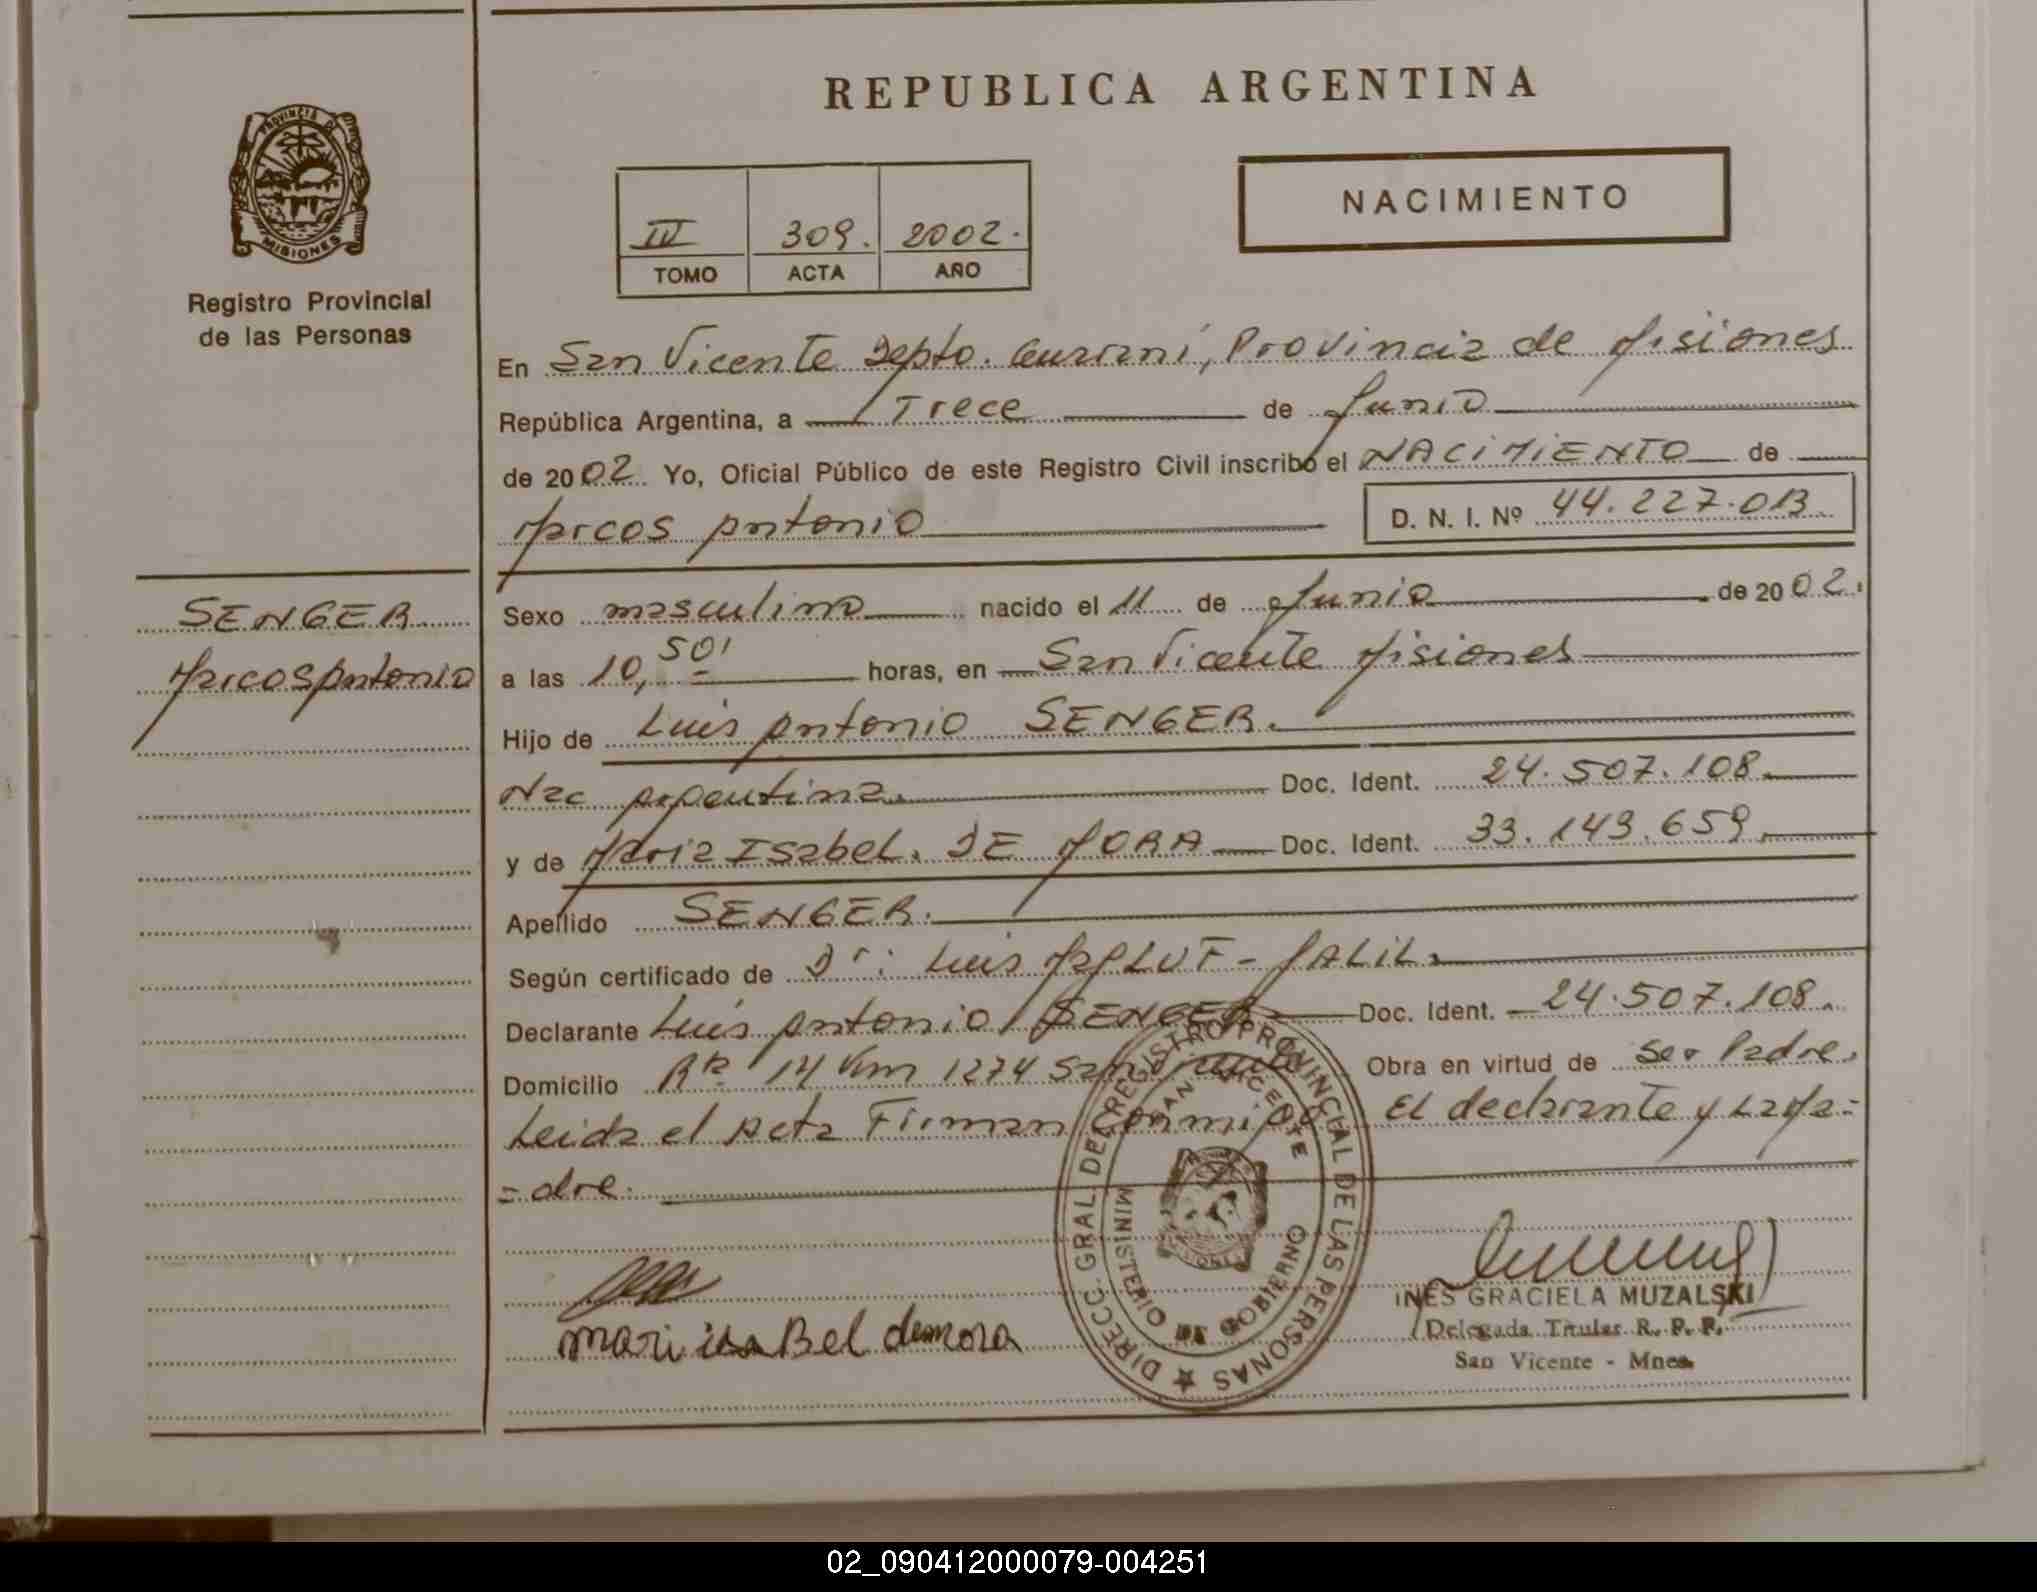 REPUBLICA ARGENTINA
PROVINCIA DE
MISIONES
Registro Provincial
de las Personas
NACIMIENTO
IV 309. 2002.
TOMO ACTA AÑO
En San Vicente Depto. Guaraní, Provincia de Misiones
República Argentina, a Trece de Junio
de 2002 Yo, Oficial Público de este Registro Civil inscribo el NACIMIENTO de
Marcos Antonio D. N. I. Nº 44.227.013
SENGER
Marcos Antonio
Sexo masculino nacido el 11 de Junio de 2002.
a las 10,50' horas, en San Vicente Misiones
Hijo de Luis Antonio SENGER.
Nac Argentina. Doc. Ident. 24.507.108.
y de Maria Isabel. DE MORA Doc. Ident. 33.149.659.
Apellido SENGER.
Según certificado de Dr: Luis MALUF - JALIL.
Declarante Luis Antonio SENGER Doc. Ident. 24.507.108.
Domicilio Rta 14 Km 1274 San Vicente Obra en virtud de Ser Padre.
Leida el Acta Firman Conmigo El declarante y La Ma=
=dre.
DIRECC. GRAL. DEL REGISTRO PROVINCIAL DE LAS PERSONAS
SAN VICENTE
MINISTERIO DE GOBIERNO
mari isaBel demora
INES GRACIELA MUZALSKI
Delegada Titular R. P. P.
San Vicente - Mnes.
02_090412000079-004251